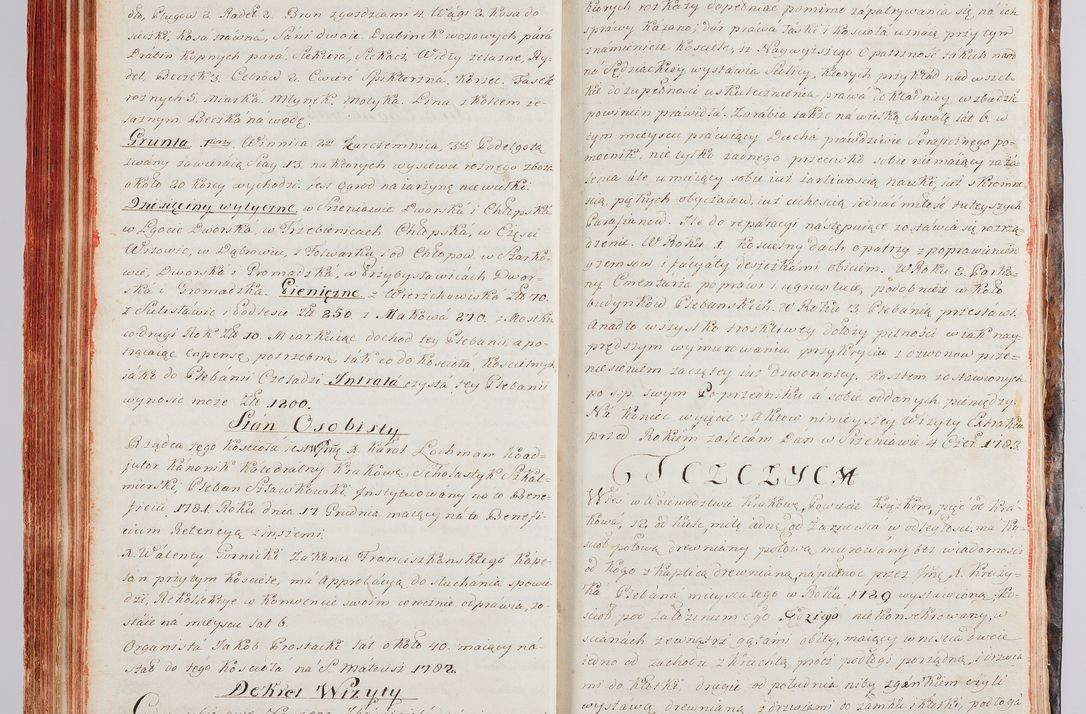 dło, Pługow 2. Radeł 2. Bron z gozdziami 4. Wagi 2. Kosa do
sieczki, Kosa trawna, Sani dwoie Drabinek wozowych para
Drabin Kopnych para, Siekiera, Siekacz, Widły żelazne, Ry-
del, Beczek 3. Cebrów 2. Cwierć Korzec. Fasek
roznych 5. Miarka. Młynek. Motyka. Lina z kołcem że-
laznym Beczka na wodę.
Grunta 1mo Winnica 2do Zarczemnica, 3tio Padelgosz
zwany zawieraią Stay 13. na ktorych wysiewu roznego zboza
około 20 korcy wychodzi. jest ogrod na iarzynę niewielki.
Dziesięciny wytyczne, w Przeniawie Dworska i Chłopska
w Lgocie Dworska, w Trzebienicach Chłopska, w Części
Wisowie, w Dąbrowie, z Folwarku, od Chłopow w Szarko-
wie, Dworska i Gromadzka, w Przybysławicach Dwor-
ska i Gromadzka. Pieniężne z Wierzchowiska Zł: 70.
z Sulisławic i Podlesie Zł: 250. z Makowa 270. z Mostku
co drugi Rok Zł: 10. Miarkuiąc dochod tey Plebanii, a po-
trącaiąc Expensę potrzebną tak co do Kościoła, Kościelnych
iako do Plebanii Czeladzi Intrata czysta tey Plebanii
wynosić może Zł: 1200.
Stan Osobisty
Rządca tego Kościoła iest Wmć Jmć X. Karol Lochman Koad-
jutor Kanonik Katedralny Krakows: Scholastyk Szkal-
mierski, Pleban Sławkowski, Instytuowany na to Bene-
ficiu 1781. Roku dnia 17 Grudnia maiący na to Benefi-
cium Retencyą z inszemi.
X. Walenty Gornicki Zakonu Franciszkańskiego Kape-
lan przy tym Kościele, ma Approbacyą do słuchania spowie-
dzi, Rekollekcye w Konwencie swoim corocznie odprawia, zo-
staie na mieyscu lat 6.
Organista Jakob Prostacki lat około 40. maiący na-
stał do tego Kościoła na S. Mateusz 1782.
Dekret Wizyty
ktorych rozkazy dopełniać pomimo zapatrywania się na ich
sprawy kazano; dać prawa łaski i Kościoła uznaię przy tym
znamienite Kościele, iż Naywyższego Opatrzność takich
no Sędziackiey wystawia Stolicy, ktorych przykład nad wszel-
kie do zupełności uskutecznienia prawa dokładnicy wzbudzić
powinien prawidła. Zarabia także na wielką chwałę lat 6. w
tym mieyscu pracuiący Ducha prawdziwie Serafickiego po-
mocnik, nie tylko żadnego przeciwko sobie nie maiący zaża-
lenia ale umieiący sobie iuż żarliwością nauki, iuż skromno-
ścią, pięknych obyczaiow, iuż cichością iednać miłość tuteyszych
Parafianow. Ile do reparacyi następuiące zostawia się rozrzą-
dzenie. W Roku 1. kościelny dach opatrzy z poprawieniem
gzemsow i facyaty deszczkami obiciem. W Roku 2. Parka-
ny Cmentarza poprawi i ugruntuie, podobnież w koło
budynkow Plebanskich. W Roku 3 Plebanią przestawi.
Anadto wszystko troskliwey dołoży pilności w iak nay-
prędszym wymurowaniu przykryciu z dzwonow prze-
niesieniem zaczętey iuż dzwonnicy. Kosztem zostawionych
po s.p. swym Poprzedniku a sobie oddanych pieniędzy.
Na koniec wyięcie z aktow ninieyszey Wizyty Extraktu
przed Rokiem zalecam Dan w Przeniawie 4 Czer: 1783.
TCZCZYCA
Wieś w Woiewodztwie Krakows: Powiecie Xiążkim, pięć od Kra-
kowa, 12. od Kielc milę iedną od Żarnowca w odległości, ma Ko-
ścioł połową drewniany połową murowany bez wiadomości
od kogo z kaplicą drewnianą na północ przez Jmć X. Krezy-
ka Plebana mieyscowego w Roku 1720 wystawioną. Ko-
ścioł pod założeniem Sgo Idziego niekonsekrowany, w
ścianach zewnątrz gątami obity, maiący wniścia dwoie
iedno od zachodu z kruchtą, prócz podłogi porządną, i drzwia-
mi do klotki, drugie od południa niby z gankiem czyli
wystawą drewnianą z drzwiami do zamku i klotki, podłoga